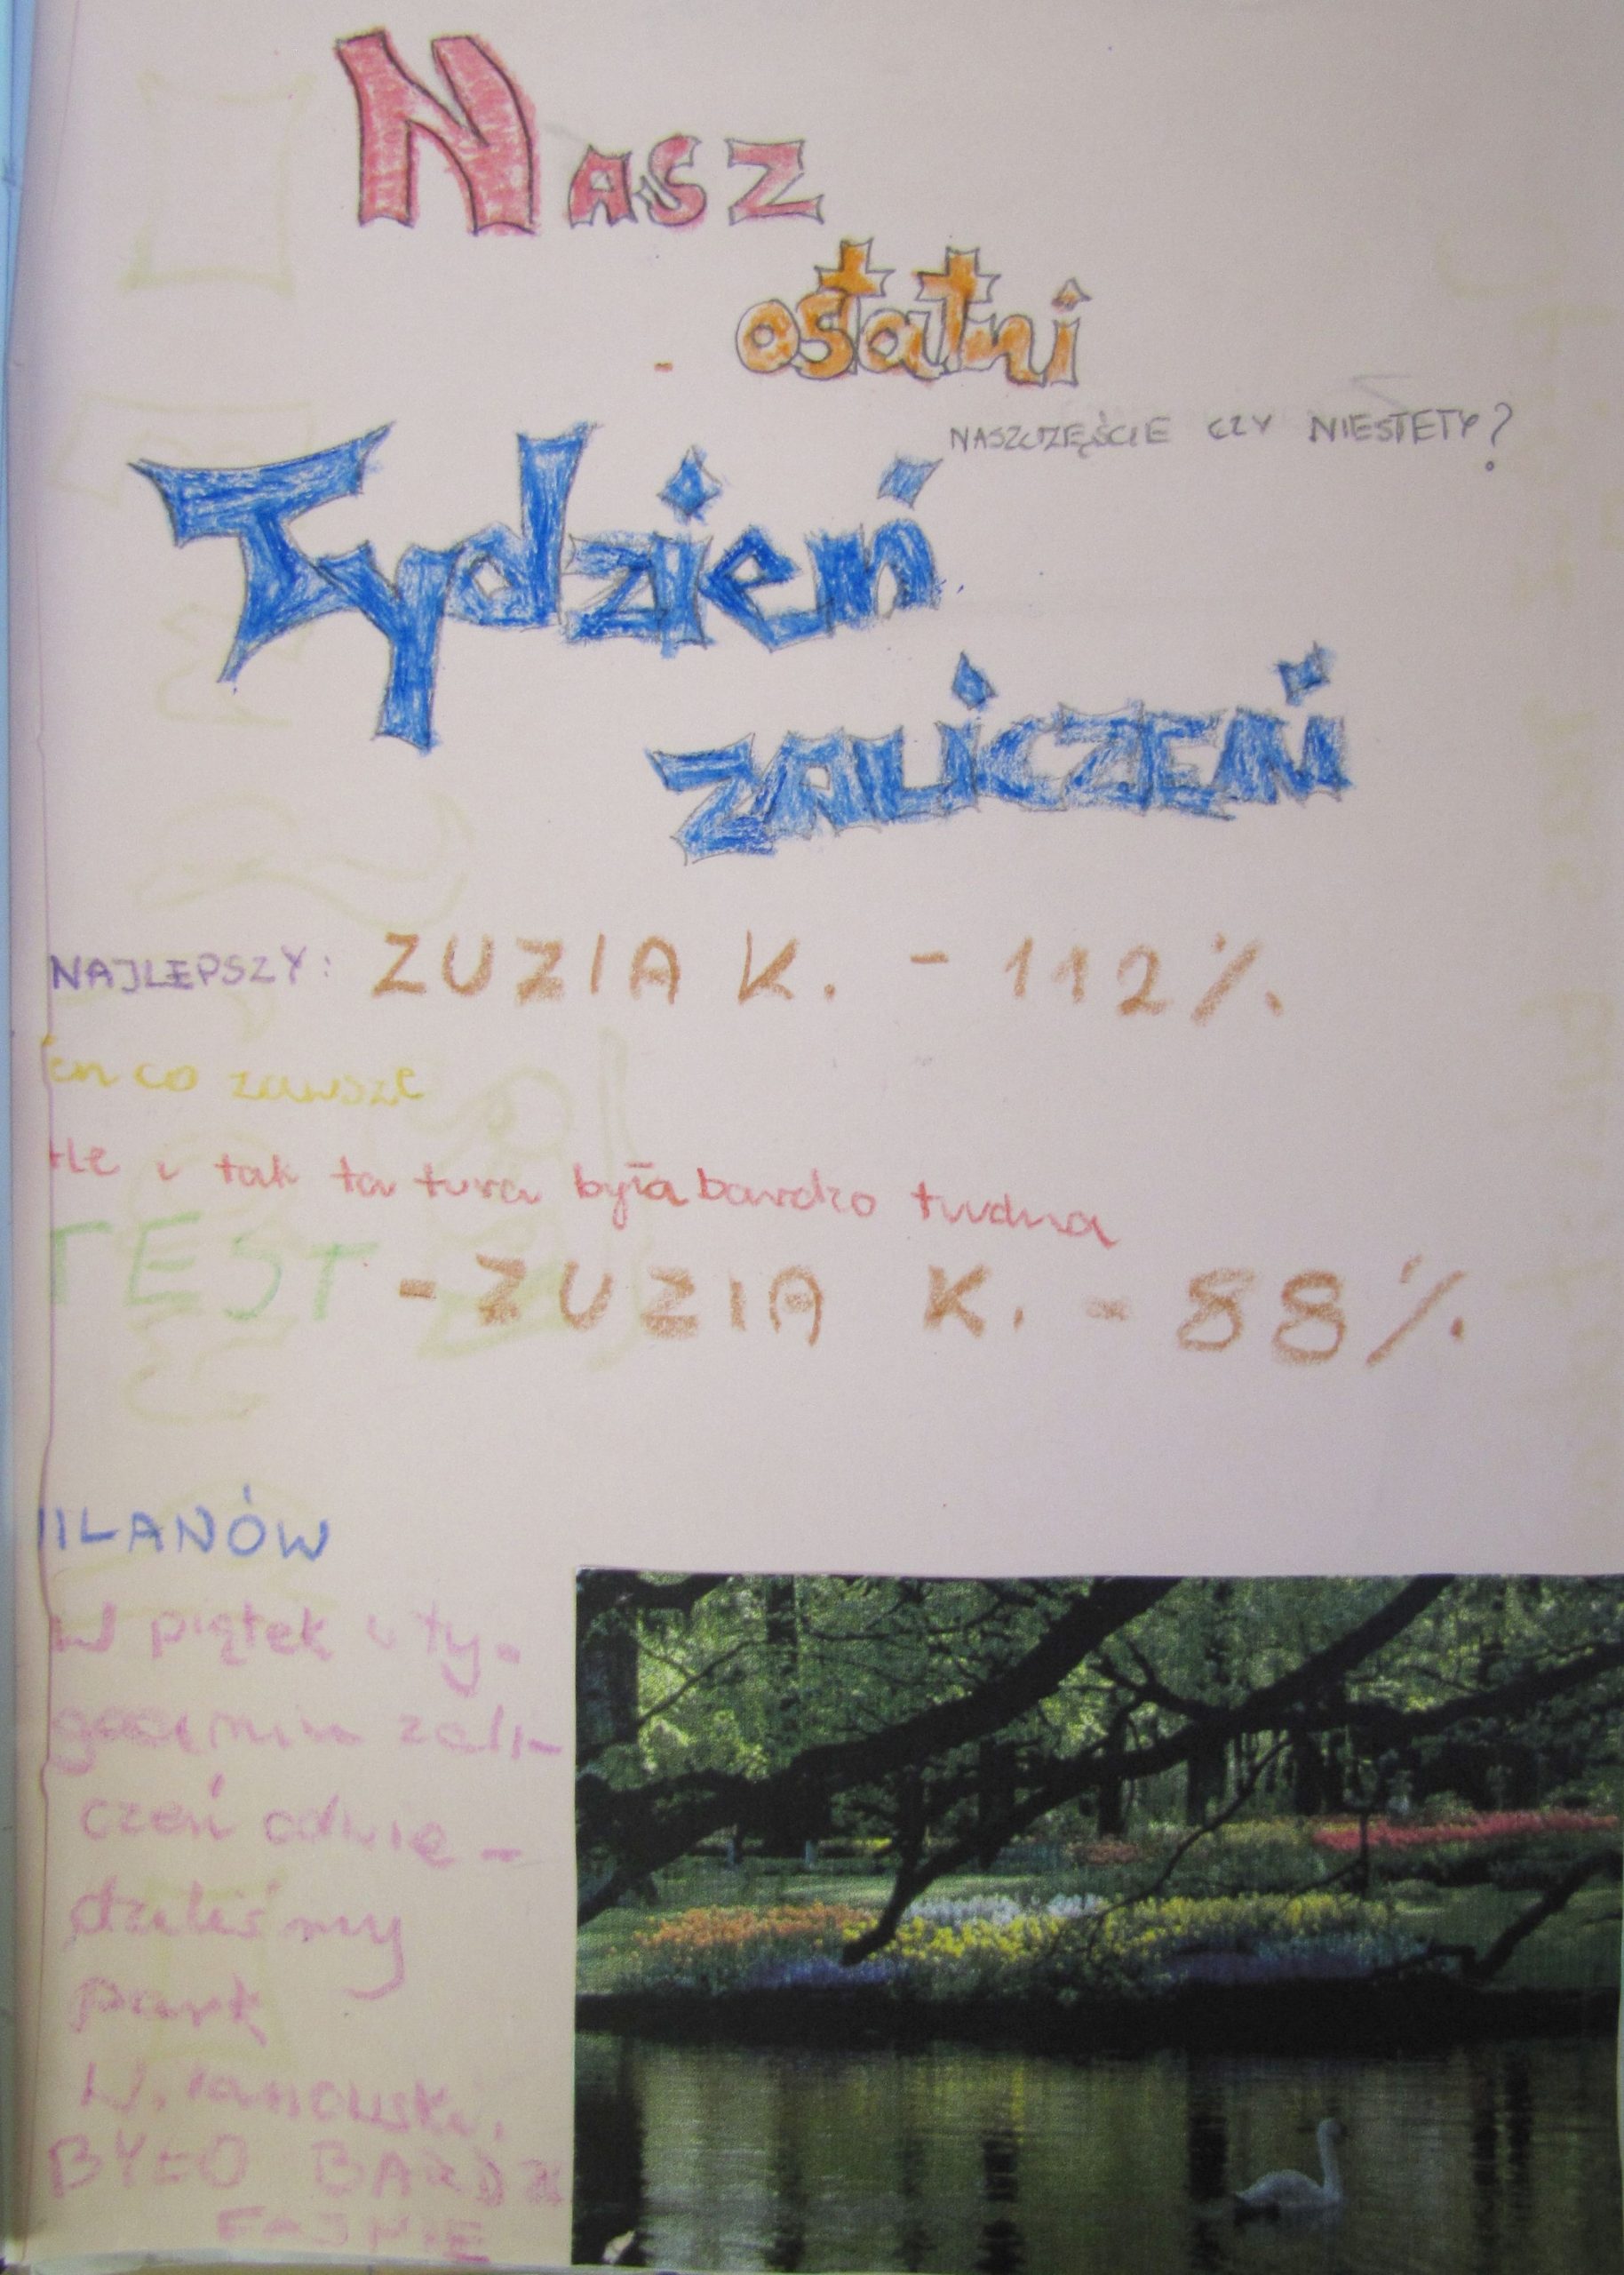 Nasz
ostatni
NASZCZĘŚCIE CZY NIESTETY?
Tydzień
ZALICZEŃ
NAJLEPSZY: ZUZIA K. - 112%
en co zawsze
tle i tak ta tura była bardzo trudna
TEST - ZUZIA K. - 88%
ILANÓW
W piątek w ty-
godniu zali-
czeń odwie-
dziliśmy
park
Wilanowski.
BYŁO BARDZ
FAJNIE